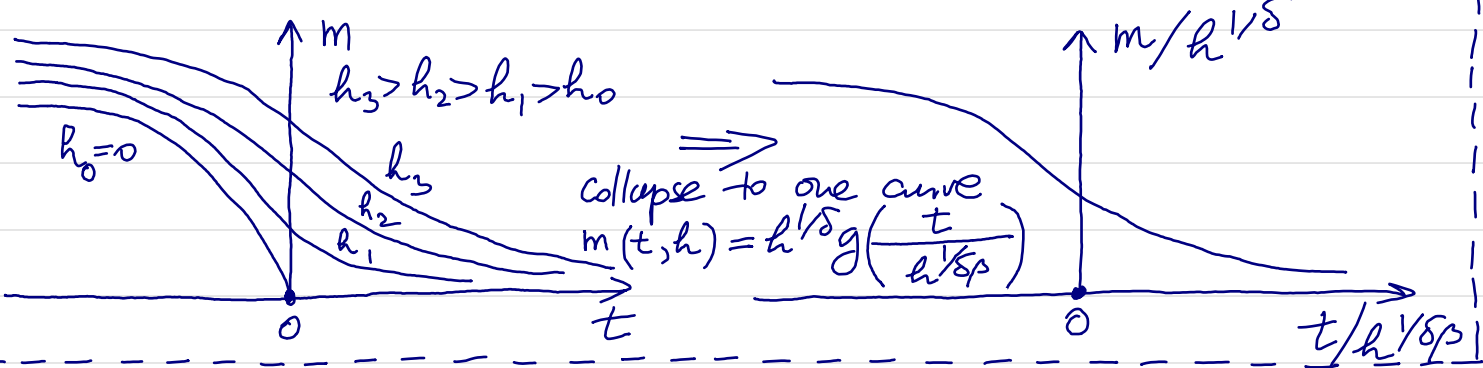 m
h₃>h₂>h₁>h₀
h₀=0
h₃
h₂
h₁
0
t
⇒
collapse to one curve
m(t,h) = h^{1/δ} g(t/h^{1/δβ})
m/h^{1/δ}
0
t/h^{1/δβ}